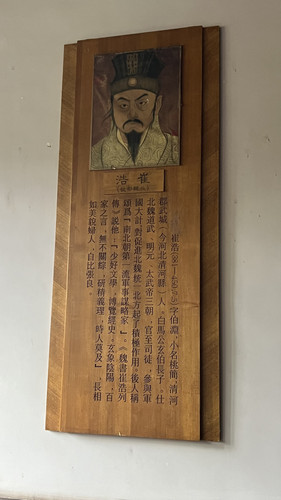 崔浩
崔浩字伯淵,小名桃簡,清河
郡武城(今河北清河縣)人。白馬公玄伯長子。仕
北魏道武、明元、太武帝三朝,官至司徒,參與軍
國大計,對促進北魏統一北方起了積極作用。後人稱
頌爲『南北朝第一流軍事謀略家』。《魏書崔浩列
傳》説他:『少好文學,博覽經史,玄象陰陽,百
家之言,無不關綜,研精義理,時人莫及』。長相
如美貌婦人,自比張良。